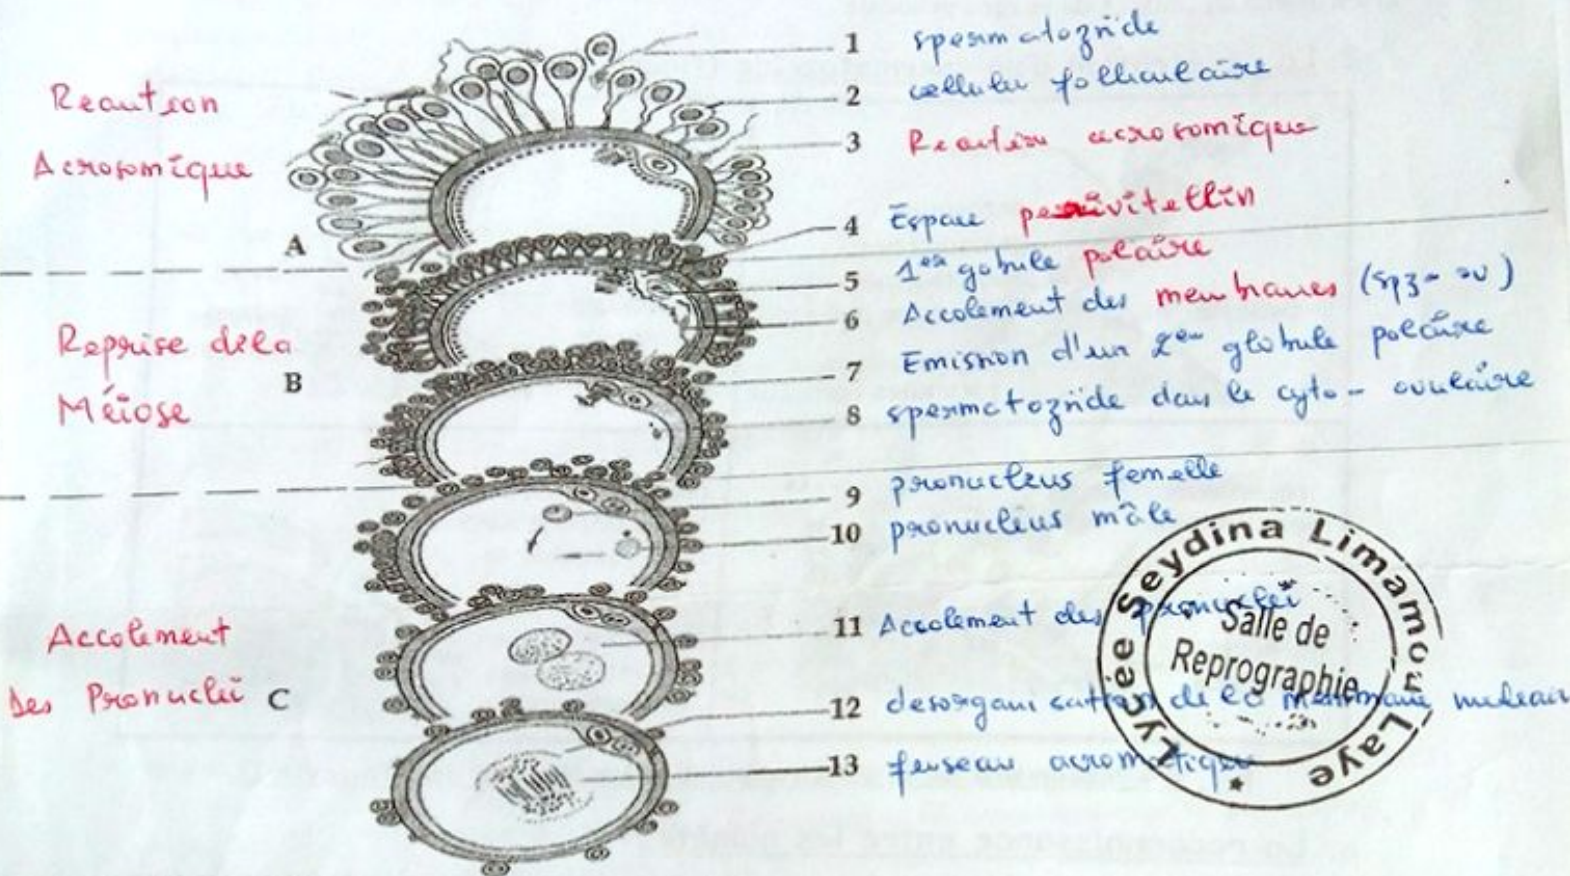 Reaction
Acrosomique
A
Reprise de la
Méiose
B
Accolement
Des Pronuclei C
1 spermatozoide
2 cellules folliculaire
3 Reaction acrosomique
4 Espace perivitellin
5 1er gobule polaire
6 Accolement des membranes (spz - ov)
7 Emission d'un 2em globule polaire
8 spermatozoide dans le cyto - ovulaire
9 pronucleus femelle
10 pronucleus mâle
11 Accolement des pronuclei
12 desorganisation de la membrane
13 fuseau acromatique
Lycée Seydina Limamou Laye
Salle de
Reprographie